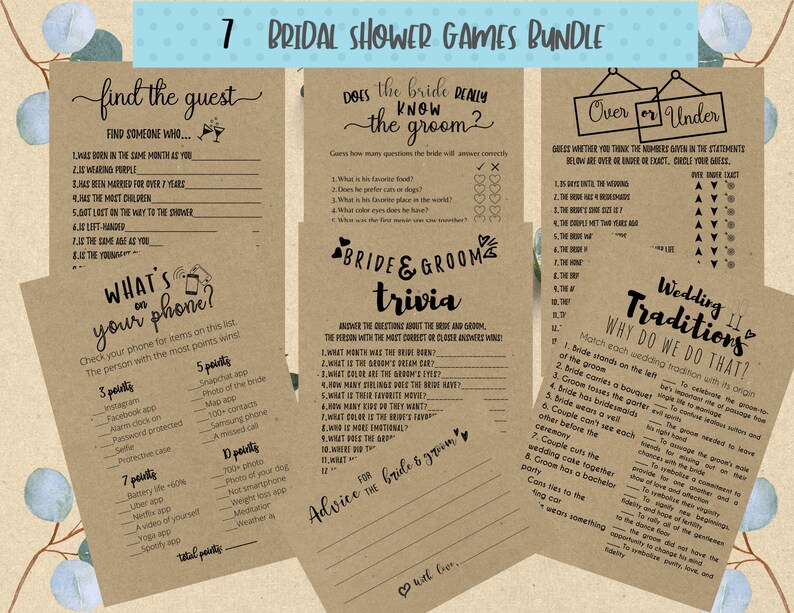 7 BRIDAL SHOWER GAMES BUNDLE
find the guest
FIND SOMEONE WHO...
1.WAS BORN IN THE SAME MONTH AS YOU
2.IS WEARING PURPLE
3.HAS BEEN MARRIED FOR OVER 7 YEARS
4.HAS THE MOST CHILDREN
5.GOT LOST ON THE WAY TO THE SHOWER
6.IS LEFT-HANDED
7.IS THE SAME AGE AS YOU
8.IS THE YOUNGEST
DOES the bride REALLY
KNOW
the groom?
Guess how many questions the bride will answer correctly
1.What is his favorite food?
2.Does he prefer cats or dogs?
3.What is his favorite place in the world?
4.What color eyes does he have?
5.What was the first movie you saw together?
Over or Under
GUESS WHETHER YOU THINK THE NUMBERS GIVEN IN THE STATEMENTS
BELOW ARE OVER OR UNDER OR EXACT. CIRCLE YOUR GUESS.
OVER UNDER EXACT
1.35 DAYS UNTIL THE WEDDING
2.THE BRIDE HAS 4 BRIDESMAIDS
3.THE BRIDE'S SHOE SIZE IS 7
4.THE COUPLE MET TWO YEARS AGO
5.THE BRIDE
6.THE BRIDE LIFE
7.THE
8.THE
9.THE
10.THE
11.THE
12.THE
WHAT'S
on
your phone?
Check your phone for items on this list.
The person with the most points wins!
3 points
Instagram
Facebook app
Alarm clock on
Password protected
Selfie
Protective case
5 points
Snapchat app
Photo of the bride
Map app
100+ contacts
Samsung phone
A missed call
7 points
Battery life +60%
Uber app
Netflix app
A video of yourself
Yoga app
Spotify app
10 points
700+ photo
Photo of your dog
Not smartphone
Weight loss app
Meditation
Weather
total points:
BRIDE & GROOM
trivia
ANSWER THE QUESTIONS ABOUT THE BRIDE AND GROOM.
THE PERSON WITH THE MOST CORRECT OR CLOSER ANSWERS WINS!
1.WHAT MONTH WAS THE BRIDE BORN?
2.WHAT IS THE GROOM'S DREAM CAR?
3.WHAT COLOR ARE THE GROOM'S EYES?
4.HOW MANY SIBLINGS DOES THE BRIDE HAVE?
5.WHAT IS THEIR FAVORITE MOVIE?
6.HOW MANY KIDS DO THEY WANT?
7.WHAT COLOR IS THE BRIDE'S
8.WHO IS MORE EMOTIONAL?
9.WHAT DOES THE GROOM
10.WHERE DID
11.WHAT
12.
Advice FOR THE bride & groom
with love,
Wedding
Traditions
WHY DO WE DO THAT?
Match each wedding tradition with its origin
1. Bride stands on the left
of the groom
2. Bride carries a bouquet
3. Groom tosses the garter
4. Bride has bridesmaids
5. Bride wears a veil
6. Couple can't see each
other before the
ceremony
7. Couple cuts the
wedding cake together
8. Groom has a bachelor
party
Cans ties to the
car
wears something
To celebrate the groom-to-
be's important rite of passage from
single life to marriage
To confuse jealous suitors and
evil spirits
The groom needed to leave
his right hand
To assuage the groom's male
friends for missing out on their
chances with the bride
To symbolize a commitment to
provide for one another and a
show of love and affection
To symbolize their virginity
To signify new beginnings,
fidelity and hope of fertility
To rally all of the gentlemen
to the dance floor
the groom did not have the
opportunity to change his mind
To symbolize purity, love, and
fidelity